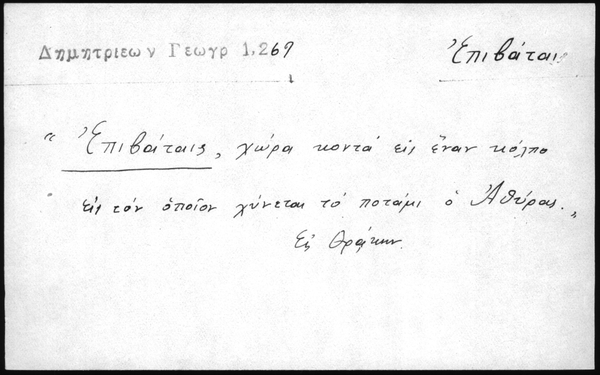 Δημητριεων Γεωγρ 1,269
Ἐπιβάταις
"Ἐπιβάταις, χώρα κοντά εἰς ἕναν κόλπο
" εἰς τόν ὁποῖον χύνεται τό ποτάμι ὁ Ἀθύρας."
Εἰς Θράκην.